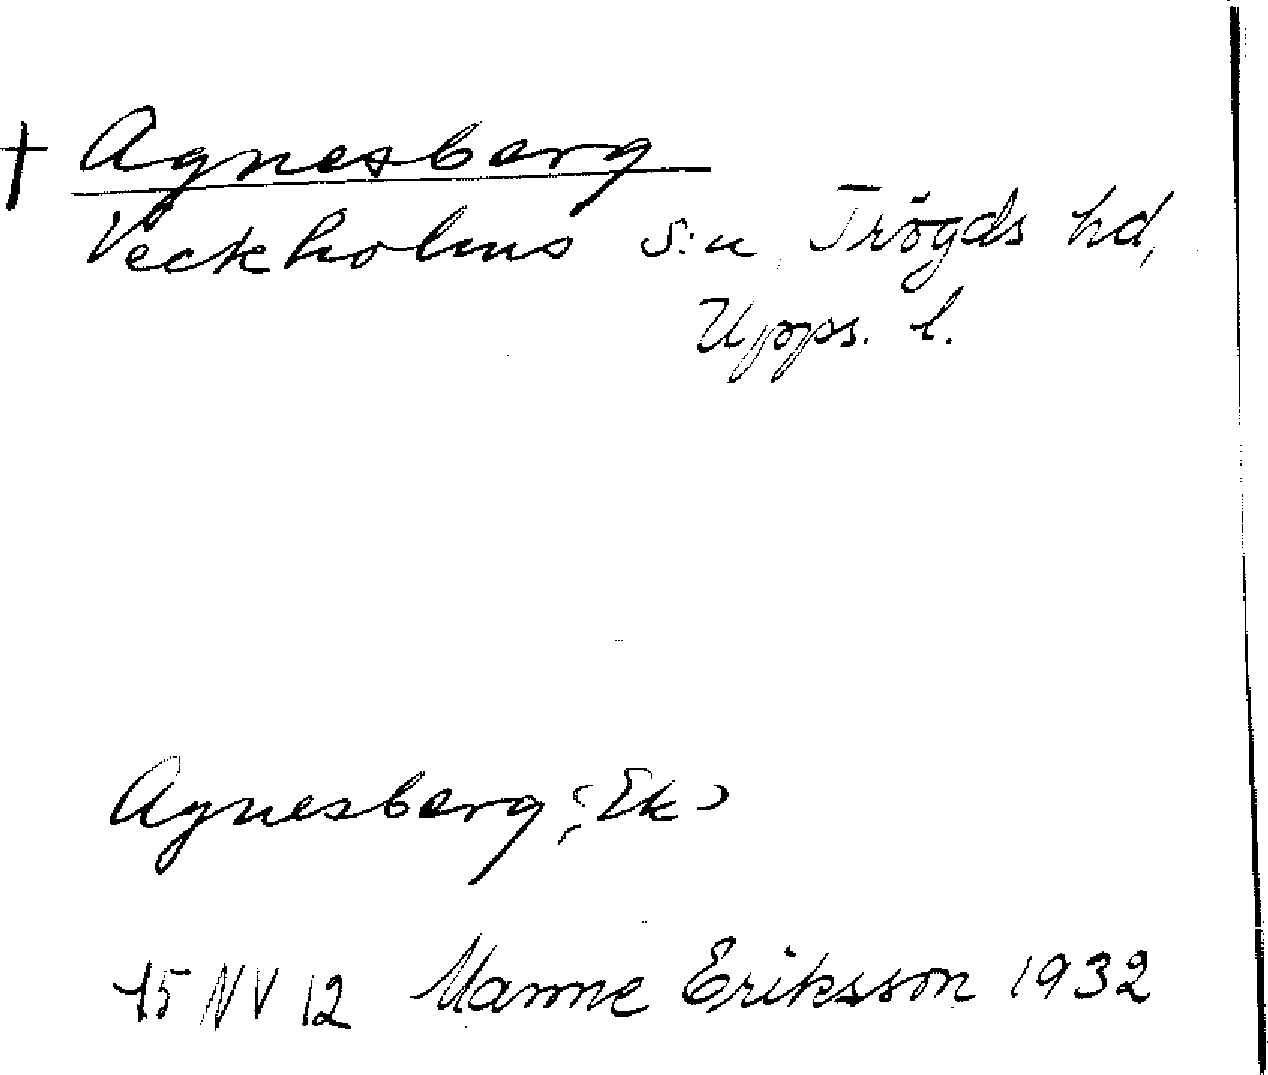 † Agnesberg
Veckholms s:n, Trögds hd,
Upps. l.
Agnesberg, (Ek)
15 NV 12 Manne Eriksson 1932